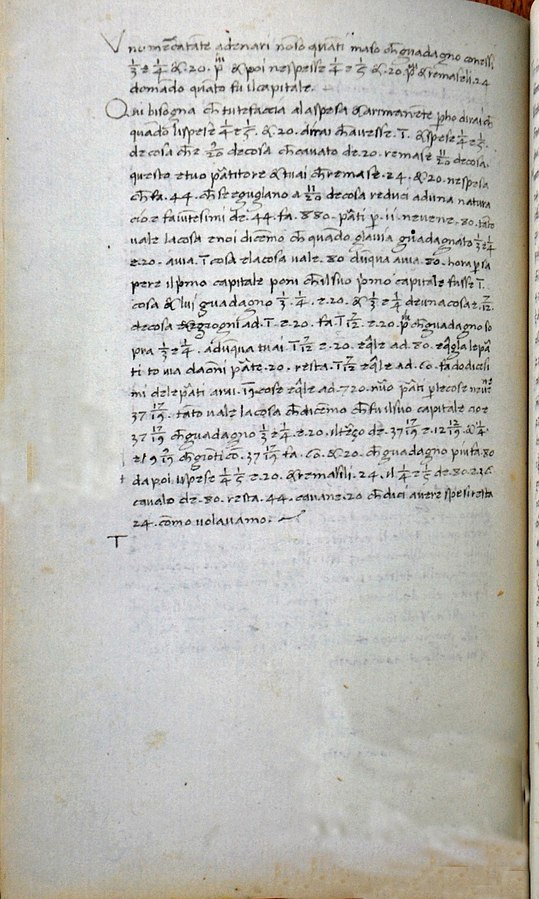 Uno mercatante à denari nō so quāti ma so ch̄ guadagno cō essi
1/3 e 1/4 & .20. p̄iu & poi ne spesse 1/4 e 1/5 & .20. p̄iu & remaseli .24
domādo quāto fu il capitale.
Qui bisogna ch̄ tu te faccia a la spesa & a rimanēte p̄ho dirai ch̄
quādo li spese 1/4 e 1/5. & .20. dirai ch̄ avesse .1̄. & spese 1/4 e 1/5.
de cosa ch̄ e 9/20 de cosa ch̄ cavato de .20. remase 11/20 de cosa.
questo e tuo p̄atitore & tu ai ch̄ remase .24. & .20. ne spesa
ch̄ fa .44. ch̄ se eguagliano a 11/20 de cosa reduci ad una natura
cio e fa vintesimi de .44. fa .880. p̄ati p̄ .11. ne vene .80. tāto
vale la cosa e noi dicemo ch̄ quādo gl avia guadagnato 1/3 e 1/4
e .20. avia .1̄. cosa e la cosa vale .80. dūqua avia .80. hora p̄ sa
pere il p̄imo capitale poni ch̄ il suo p̄imo capitale fusse .1̄.
cosa & lui guadagno 1/3. 1/4. e .20. & 1/3 e 1/4 de una cosa e 7/12.
de cosa giogni ad .1̄. e .20. fa .1̄ 7/12. e .20. p̄iu ch̄ guadagno so
pra 1/3 e 1/4. adūqua tu ai .1̄ 7/12 e .20. eq̄le ad .80. eq̄gla le pa
ti to via da oni p̄ate .20. resta .1̄ 7/12 eq̄le ad .60. fa dodicesi
mi de le p̄ati arai .19. cose eq̄le ad .720. nūo p̄ati p̄ le cose neve
37 17/19. tāto vale la cosa ch̄ dicemo ch̄ fu il suo capitale cioe
37 17/19 ch̄ guadagno 1/3 e 1/4 e .20. il terço de .37 17/19 e 12 12/19 & 1/4
e 9 9/19 ch̄ giōti cō .37 17/19 fa .60. & .20. ch̄ guadagno piu fa .80
da poi li spese 1/4 1/5 e .20. & remasili .24. il 1/4 e 1/5 de .80. e 36
cavalo de .80. resta .44. cavane .20 ch̄ dici avere spesi resta
24. como volavamo.
T